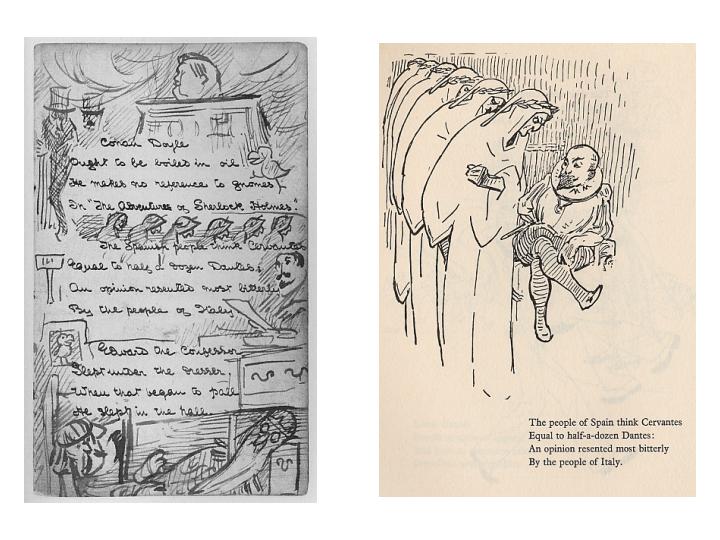 Conan Doyle
Ought to be boiled in oil:
He makes no reference to gnomes
In "The Adventures of Sherlock Holmes".
The Spanish people think Cervantes
Equal to half a dozen Dantes;
An opinion resented most bitterly
By the people of Italy
Edward the Confessor
Slept under the dresser,
When that began to pall
He slept in the hall.
The people of Spain think Cervantes
Equal to half-a-dozen Dantes:
An opinion resented most bitterly
By the people of Italy.